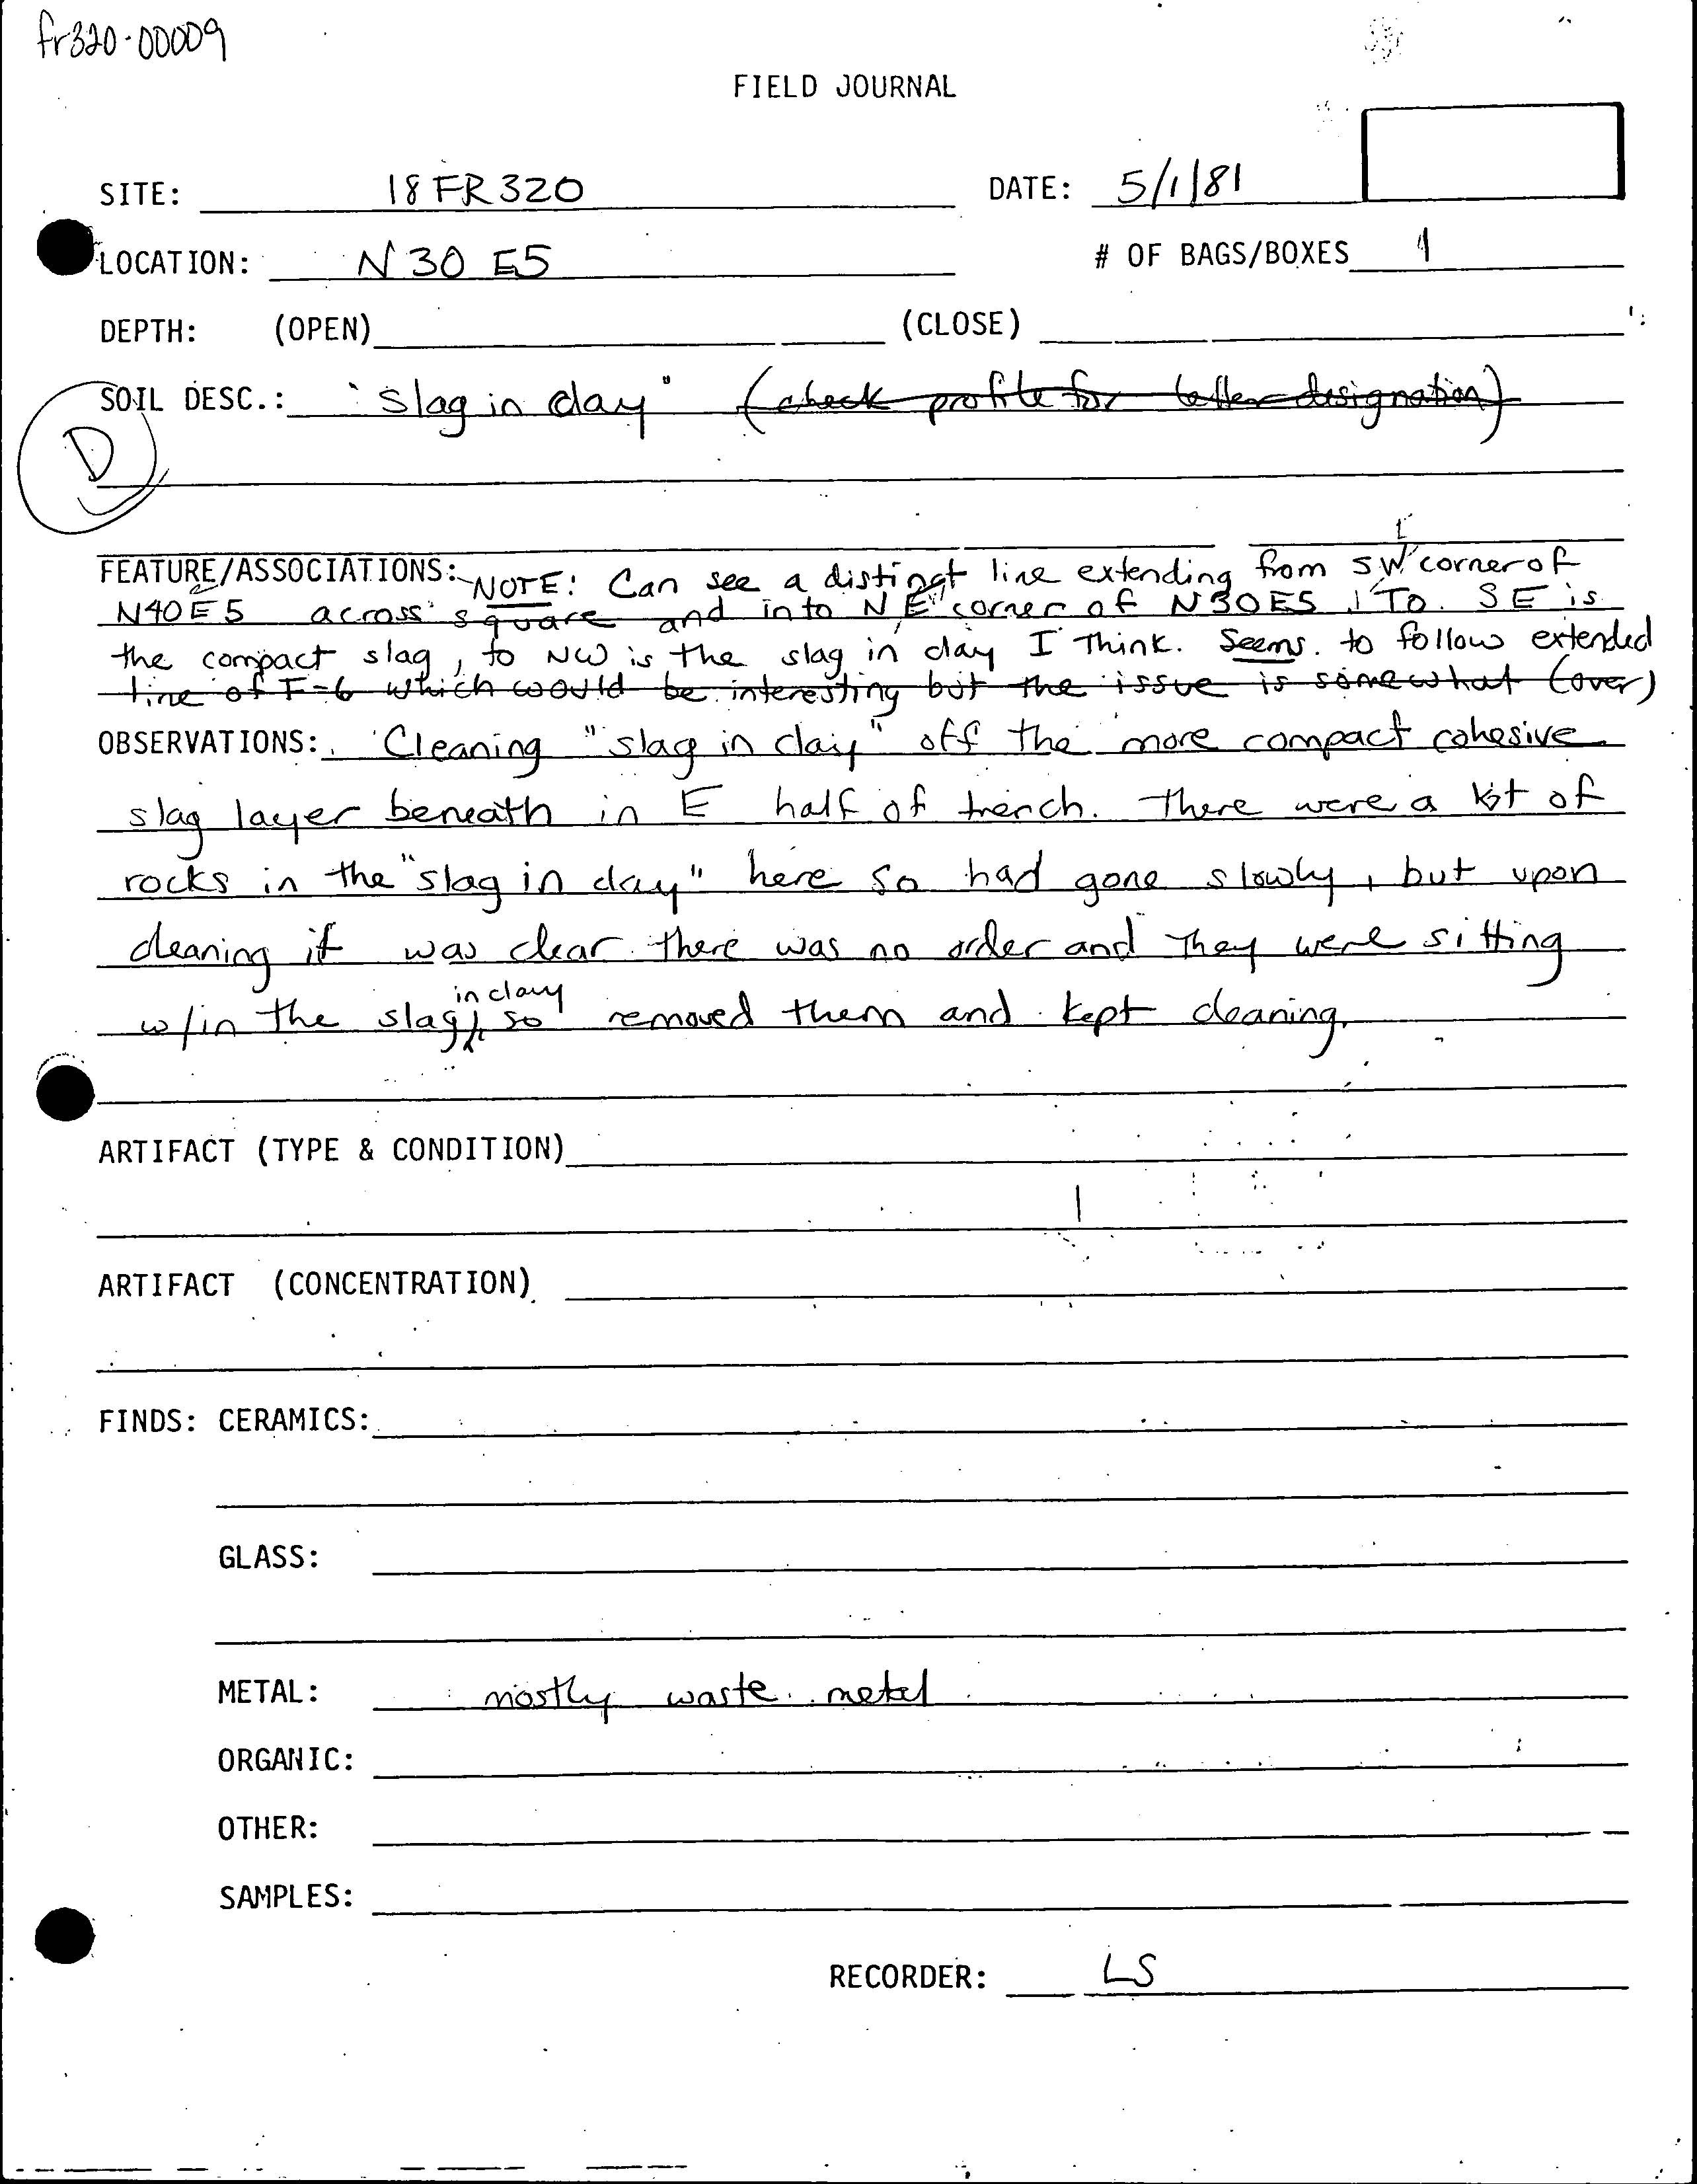 fr320-00009
FIELD JOURNAL
SITE: 18 FR 320 DATE: 5/1/81
LOCATION: N 30 E5 # OF BAGS/BOXES 1
DEPTH: (OPEN) (CLOSE)
SOIL DESC.: "slag in clay" (check profile for letter designation)
D
FEATURE/ASSOCIATIONS: NOTE: Can see a distinct line extending from SW corner of
N40E5 across square and into NE corner of N30E5. To SE is
the compact slag, to NW is the slag in clay I think. Seems to follow extended
line of F-6 which would be interesting but the issue is somewhat (over)
OBSERVATIONS: Cleaning "slag in clay" off the more compact cohesive
slag layer beneath in E half of trench. There were a lot of
rocks in the "slag in clay" here so had gone slowly, but upon
cleaning it was clear there was no order and they were sitting
w/in the slag in clay, so removed them and kept cleaning.
ARTIFACT (TYPE & CONDITION)
ARTIFACT (CONCENTRATION)
FINDS: CERAMICS:
GLASS:
METAL: mostly waste metal
ORGANIC:
OTHER:
SAMPLES:
RECORDER: LS